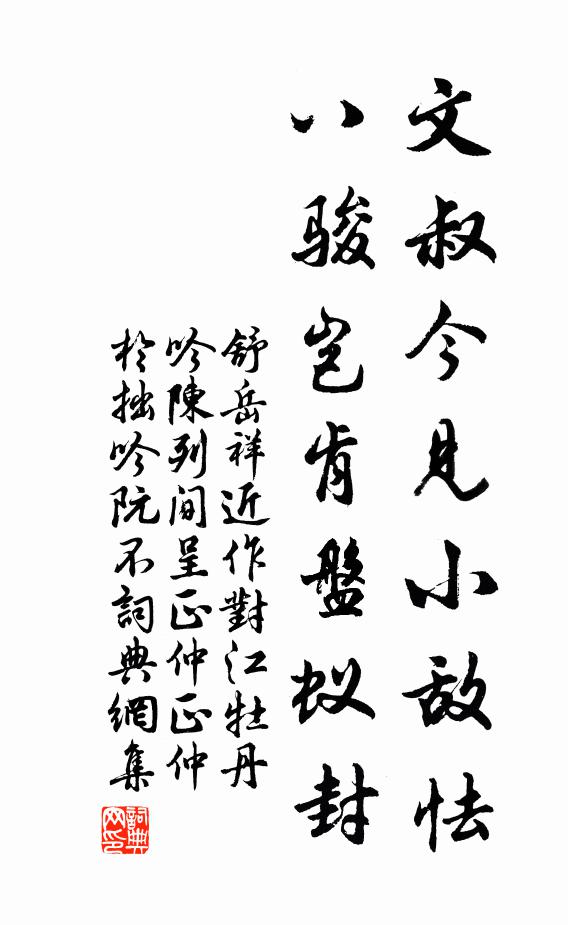 文叔今见小敌怯
八骏岂肯盘蚁封
舒岳祥近作對江牡丹
吟陳列间呈正仲正仲
於拙吟阮不詞典網集
詞典网印